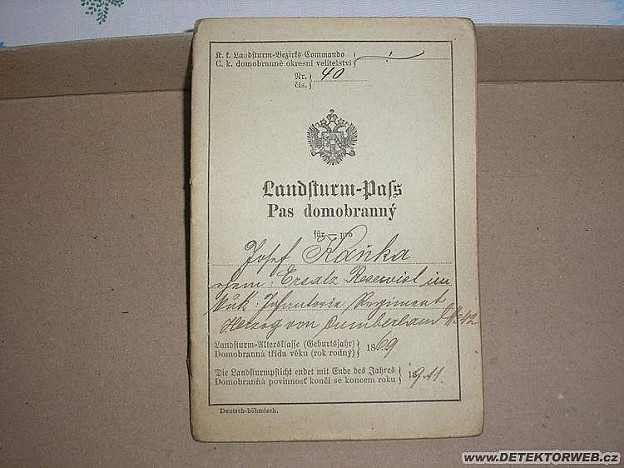 K. k. Landsturm-Bezirks-Commando
C. k. domobranné okresní velitelství
Nr.
čís. 40
Landsturm-Pass
Pas domobranný
für — pro
Josef Kaňka
ehem. Ersatz Reservist im
k.u.k. Infanterie Regiment
Herzog von Cumberland № 42
Landsturm-Altersklasse (Geburtsjahr)
Domobranná třída věku (rok rodný) 1869
Die Landsturmpflicht endet mit Ende des Jahres
Domobranná povinnosť končí se koncem roku 1911
Deutsch-böhmisch.
www.DETEKTORWEB.cz